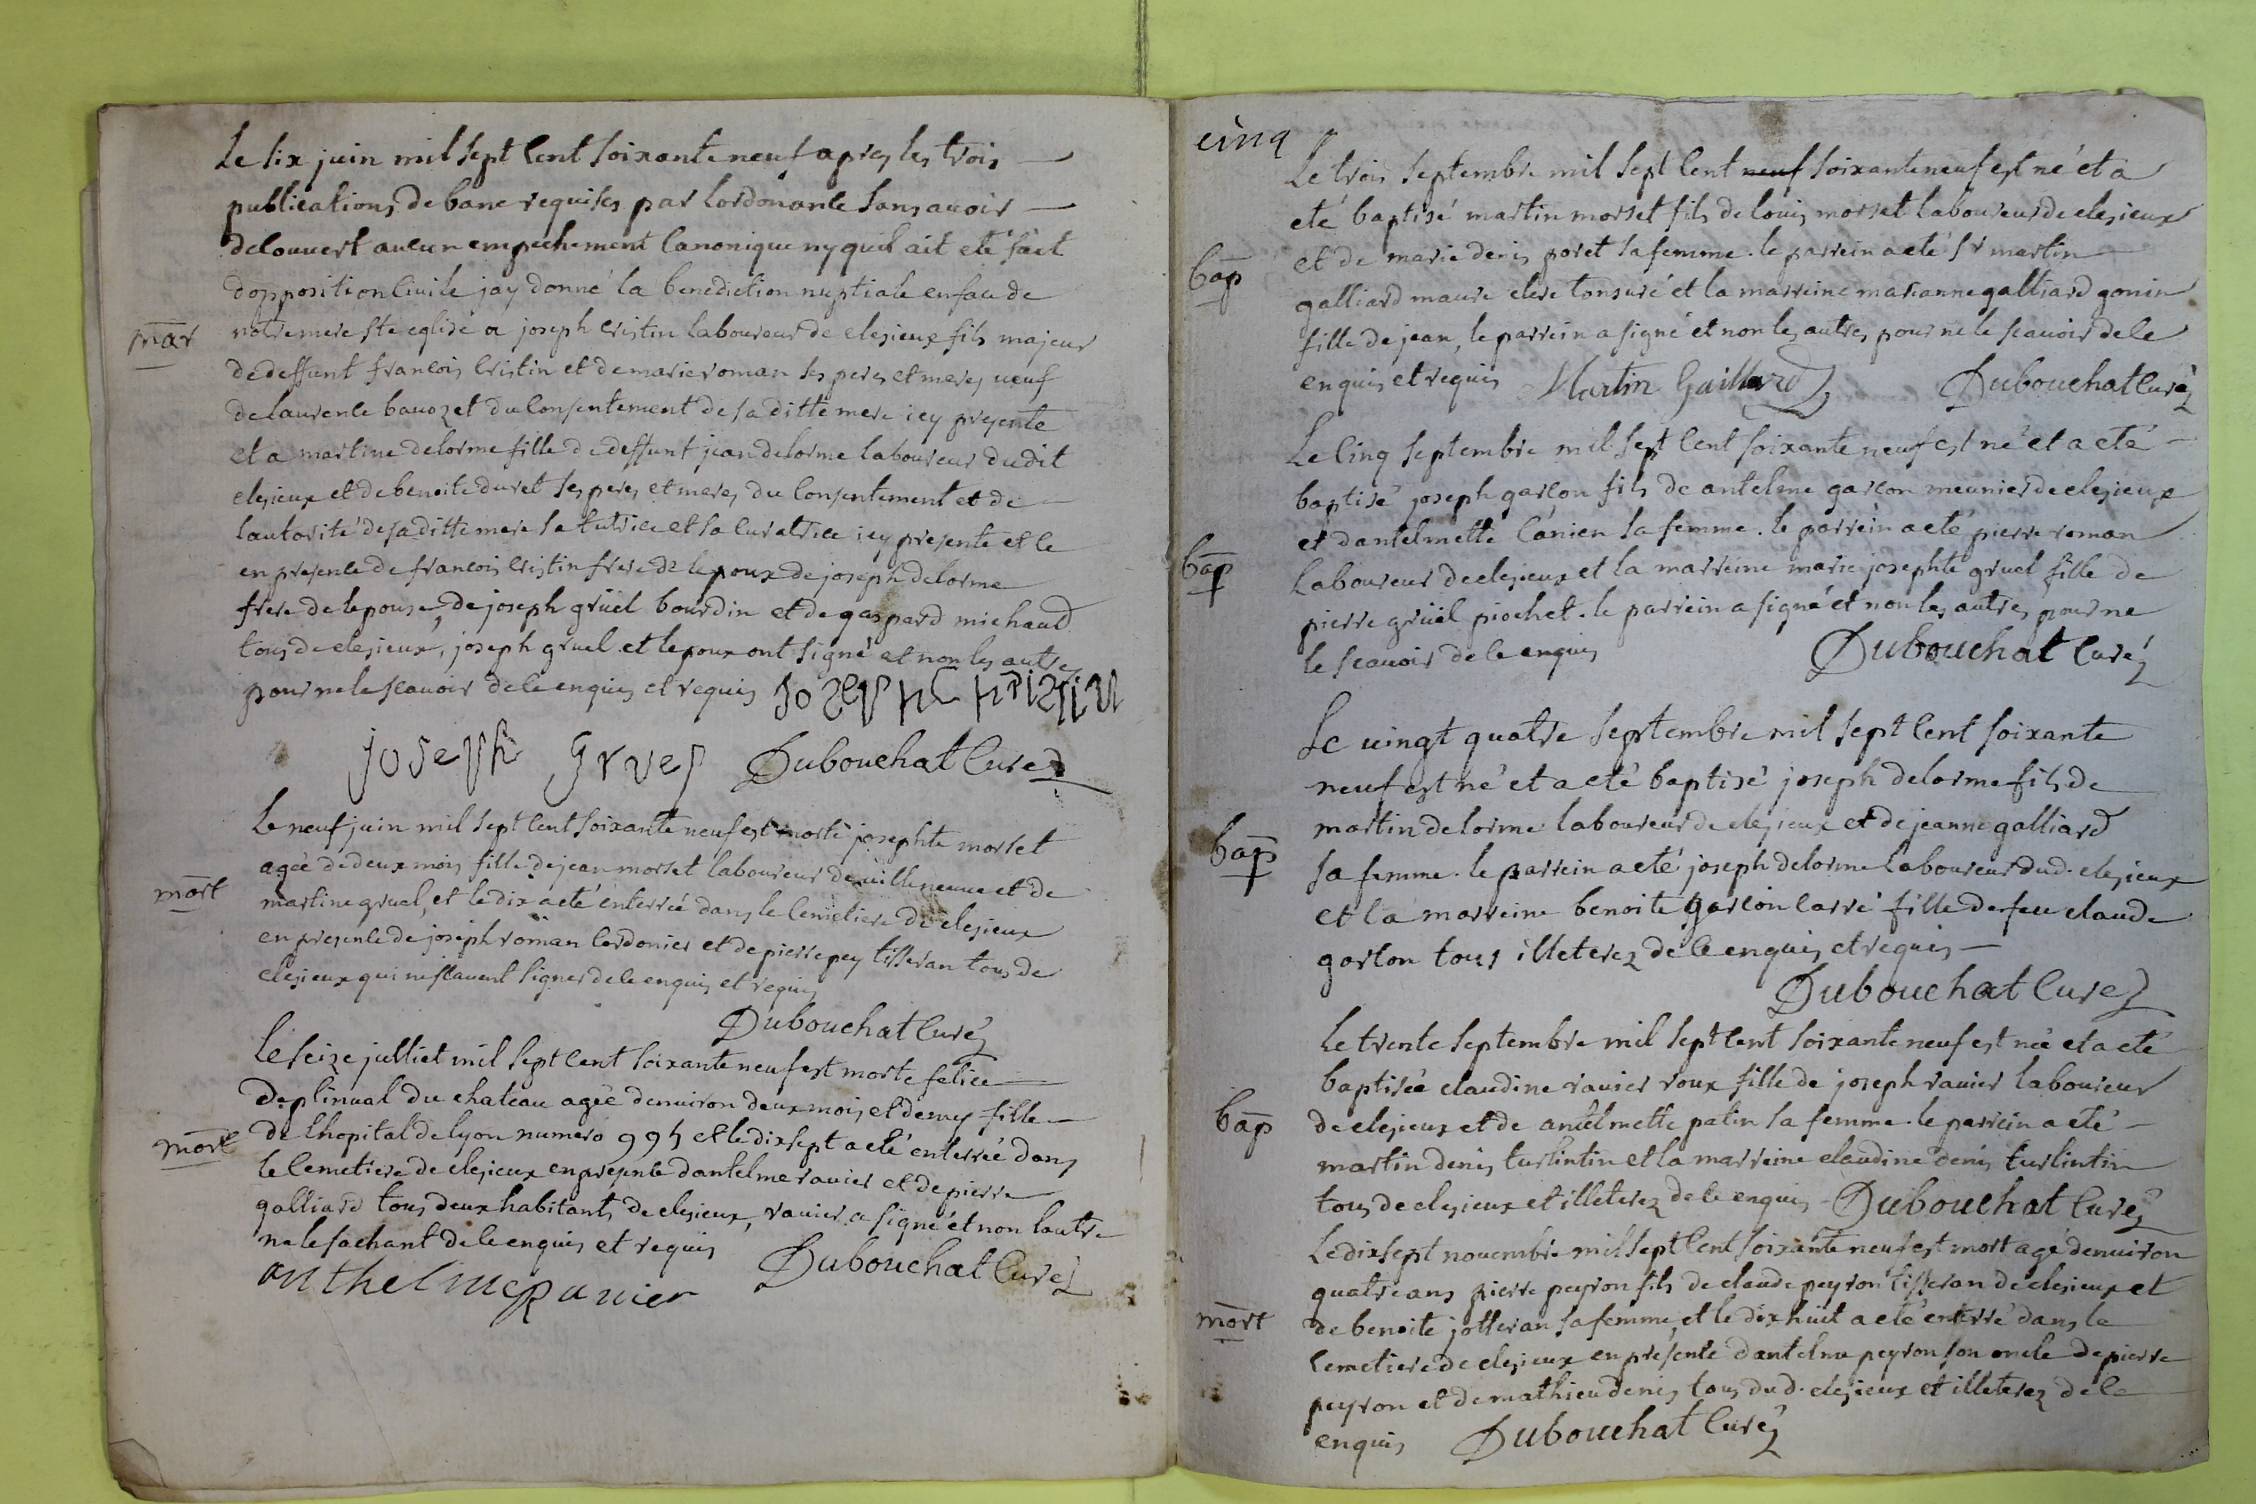 Le six juin mil sept cent soixante neuf apres les trois
publications de banc requises par lordonance sans avoir
decouvert aucun empechement canonique ny quil ait eté fait
dopposition civile jay donné la benediction nuptiale en face de
mar
notre mere ste eglise a joseph cristin laboureur de clesieux fils majeur
de deffunt francois cristin et de marie roman ses peres et meres veuf
de laurence bavozet du consentement de sa ditte mere icy presente
et a martine delorme fille de deffunt jean delorme laboureur dudit
clesieux et de benoite duret ses peres et meres du consentement et de
lautorité de sa ditte mere sa tutrice et sa curatrice icy presente et ce
en presence de francois cristin frere de lepoux de joseph delorme
frere de lepouse, de joseph grüel bourdin et de gaspard michaud
tous de clesieux, joseph gruel et lepoux ont signé et non les autres
pour ne le scavoir de ce enquis et requis Joseph Chpistin
joseph gruel Dubouchat curé
Le neuf juin mil sept cent soixante neuf est morte josephte morset
agée de deux mois fille de jean morset laboureur de villeneuve et de
mort
martine gruel, et le dix a eté enterrée dans le cemetiere de clesieux
en presence de joseph roman cordonier et de pierre pey tisseran tous de
clesieux qui ne scavent signer de ce enquis et requis
Dubouchat curé
Le seize julliet mil sept cent soixante neuf est morte felice
deplinval du chateau agée denviron deux mois et demy fille
de lhopital de lyon numero 995 et le dix sept a eté enterrée dans
mort
le cemetiere de clesieux en presence dantelme ravier et de pierre
galliard tous deux habitants de clesieux, ravier a signé et non lautre
ne le sachant de ce enquis et requis
anthelme Ravier Dubouchat curé
cinq
Le trois septembre mil sept cent neuf soixante neuf est né et a
eté baptisé martin morset fils de louis morset laboureur de clesieux
bap
et de marie denis poret sa femme. le parrein a eté sr martin
galliard maure clerc tonsuré et la marreine marianne galliard gonin
fille de jean, le parrein a signé et non les autres pour ne le scavoir de ce
enquis et requis Martin Gaillard Dubouchat curé
Le cinq septembre mil sept cent soixante neuf est né et a eté
baptisé joseph garcon fils de antelme garcon meunier de clesieux
et dantelmette canien sa femme. le parrein a eté pierre roman
bap
laboureur de clesieux et la marreine marie josephte gruel fille de
pierre grüel piochet. le parrein a signé et non les autres pour ne
le scavoir de ce enquis Dubouchat curé
Le vingt quatre septembre mil sept cent soixante
neuf est né et a eté baptisé joseph delorme fils de
martin delorme laboureur de clesieux et de jeanne galliard
bap
sa femme. le parrein a eté joseph delorme laboureur dud. clesieux
et la marreine benoite garcon carré fille de feu claude
garcon tous illeterez de ce enquis et requis
Dubouchat curé
Le trente septembre mil sept cent soixante neuf est née et a eté
baptisée claudine ravier roux fille de joseph ravier laboureur
bap
de clesieux et de antelmette patin sa femme. le parrein a eté
martin denis turlintin et la marreine claudine denis turlintin
tous de clesieux et illeterez de ce enquis Dubouchat curé
Le dix sept novembre mil sept cent soixante neuf est mort agé denviron
quatre ans pierre peyron fils de claude peyron tisseran de clesieux et
mort
de benoite jotteran sa femme, et le dix huit a eté enterré dans le
cemetiere de clesieux en presence dantelme peyron son oncle de pierre
peyron et de mathieu denis tous dud. clesieux et illeterez de ce
enquis Dubouchat curé